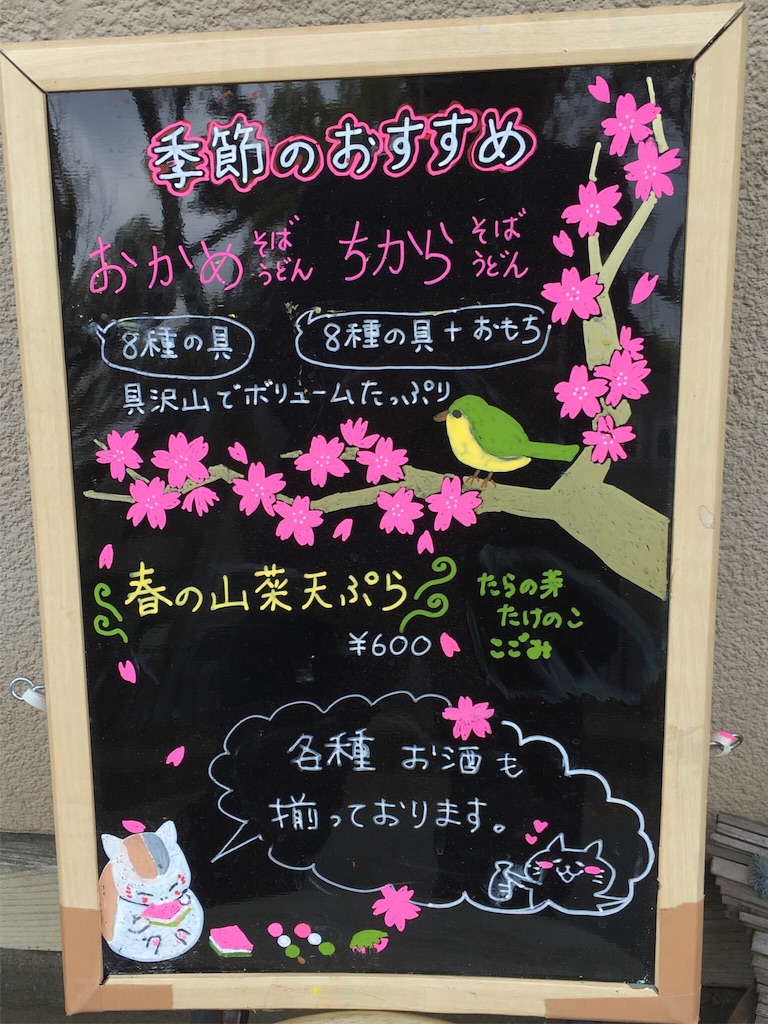 季節のおすすめ
おかめ そば うどん ちから そば うどん
8種の具 8種の具+おもち
具沢山でボリュームたっぷり
春の山菜天ぷら
¥600
たらの芽
たけのこ
こごみ
各種 お酒も
揃っております。